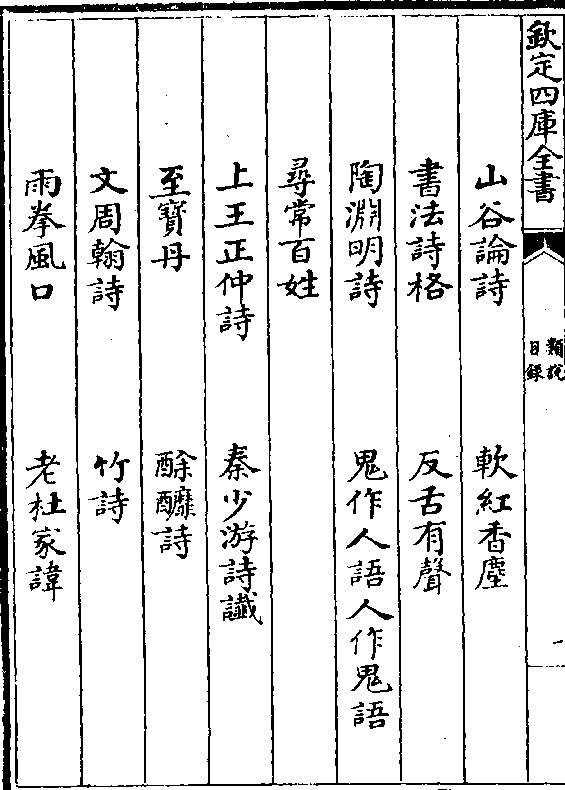 欽定四庫全書
類說
目錄
山谷論詩 軟紅香塵
書法詩格 反舌有聲
陶淵明詩 鬼作人語人作鬼語
尋常百姓
上王正仲詩 秦少游詩讖
至寶丹 酴醾詩
文周翰詩 竹詩
雨拳風口 老杜家諱